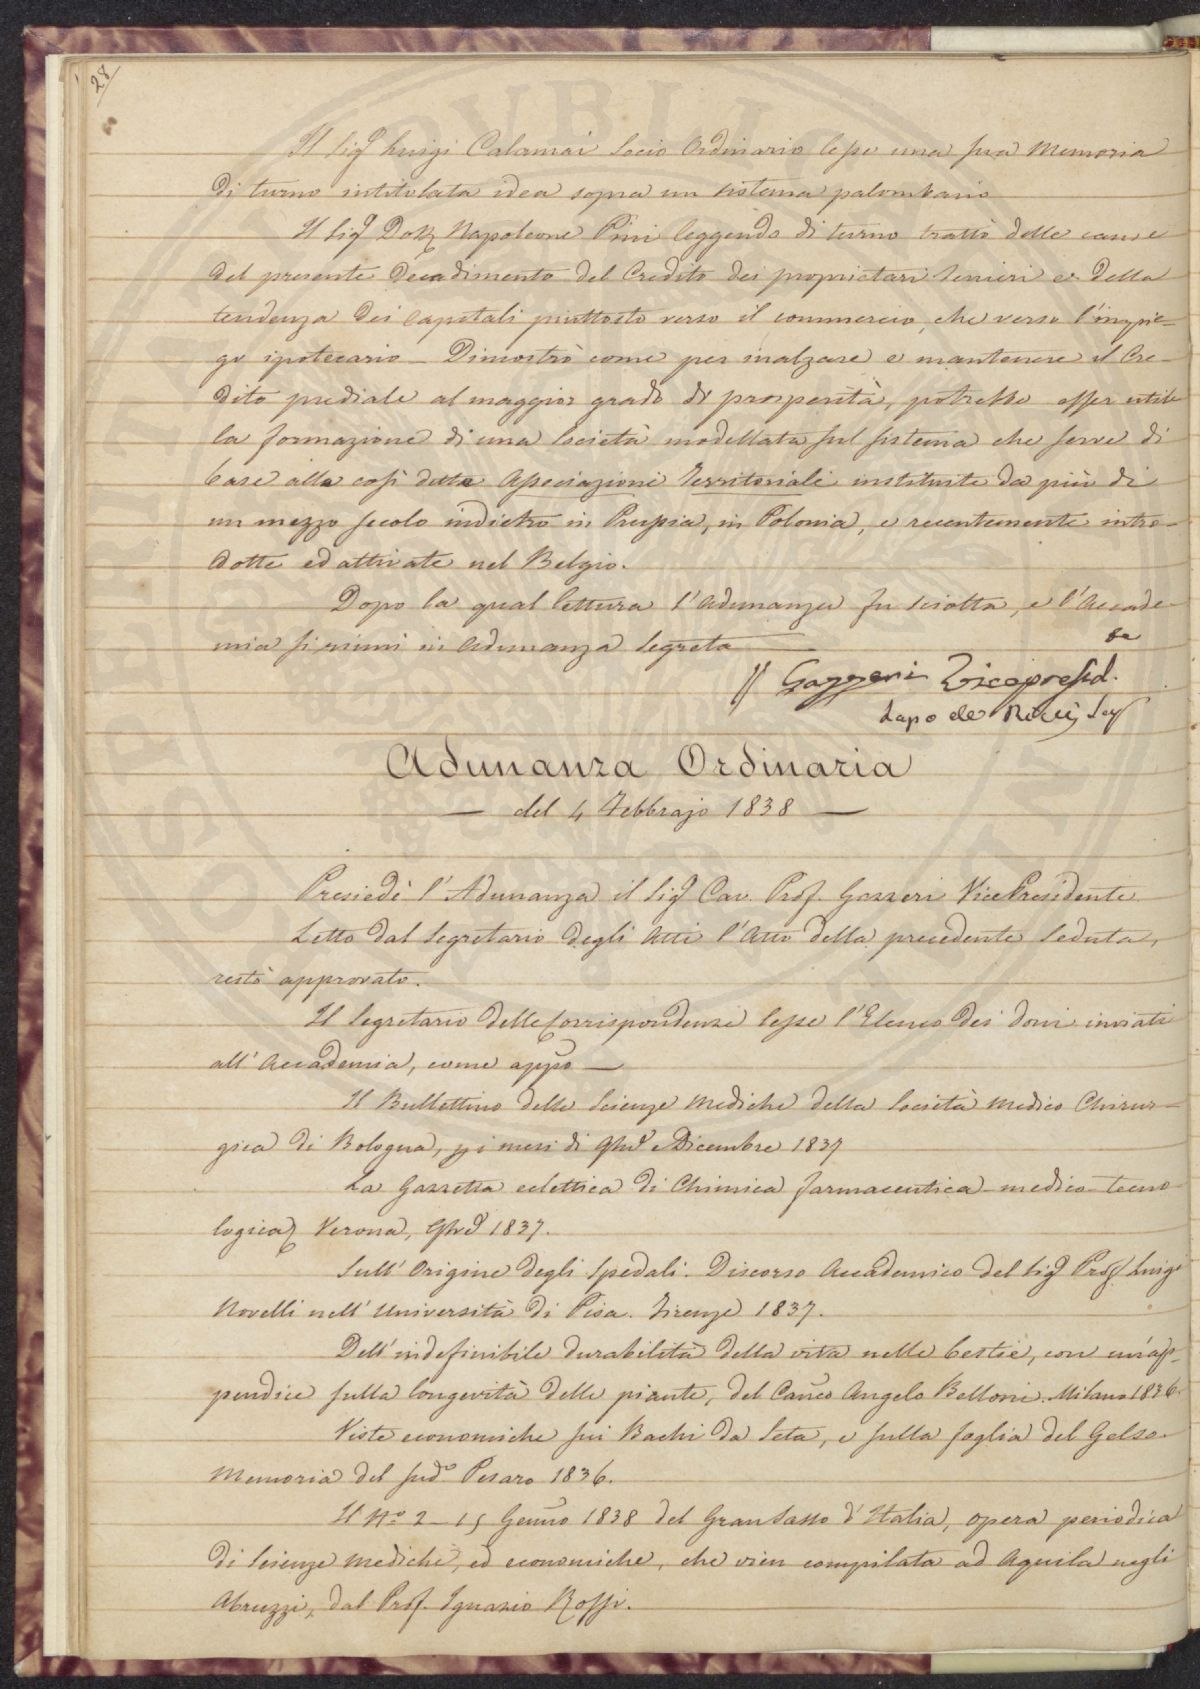 28
Il Sig.r Luigi Calamai Socio Ordinario lesse una sua Memoria
di turno intitolata idea sopra un sistema palombario
Il Sig.r Dott. Napoleone Pini leggendo di turno trattò delle cause
del presente decadimento del Credito dei proprietari terrieri e della
tendenza dei capitali piuttosto verso il commercio, che verso l'impie-
go ipotecario – Dimostrò come per inalzare e mantenere il Cre-
dito prediale al maggior grado di prosperità, potrebbe esser utile
la formazione di una Società modellata sul sistema che serve di
base alle così dette Associazioni Territoriali instituite da più di
un mezzo secolo indietro in Prussia, in Polonia, e recentemente intro-
dotte ed attivate nel Belgio.
Dopo la qual lettura l'adunanza fu sciolta, e l'Accade-
mia si riunì in adunanza segreta
G. Gazzeri Vicepresid.te
Lapo de Ricci Seg.
Adunanza Ordinaria
— del 4 Febbrajo 1838 —
Presiedè l'Adunanza il Sig.r Cav. Prof. Gazzeri VicePresidente
Letto dal Segretario degli Atti l'Atto della precedente Seduta,
restò approvato.
Il Segretario delle Corrispondenze lesse l'Elenco dei doni inviati
all'Accademia, come app.o —
Il Bullettino delle Scienze Mediche della Società Medico Chirur-
gica di Bologna, p i mesi di 9bre e Dicembre 1837
La Gazzetta eclettica di Chimica farmaceutica-medico-tecno
logica, Verona, 9bre 1837.
Sull'Origine degli Spedali. Discorso Accademico del Sig.r Prof. Luigi
Novelli nell'Università di Pisa. Firenze 1837.
Dell'indefinibile durabilità della vita nelle bestie, con un'ap-
pendice sulla longevità delle piante, del Can.co Angelo Bellani. Milano 1836.
Viste economiche sui Bachi da Seta, e sulla foglia del Gelso.
Memoria del sud.o Pesaro 1836.
Il N.o 2 – 15 Genn.o 1838 del Gran Sasso d'Italia, opera periodica
di Scienze mediche, ed economiche, che vien compilata ad Aquila negli
Abruzzi, dal Prof. Ignazio Rossi.